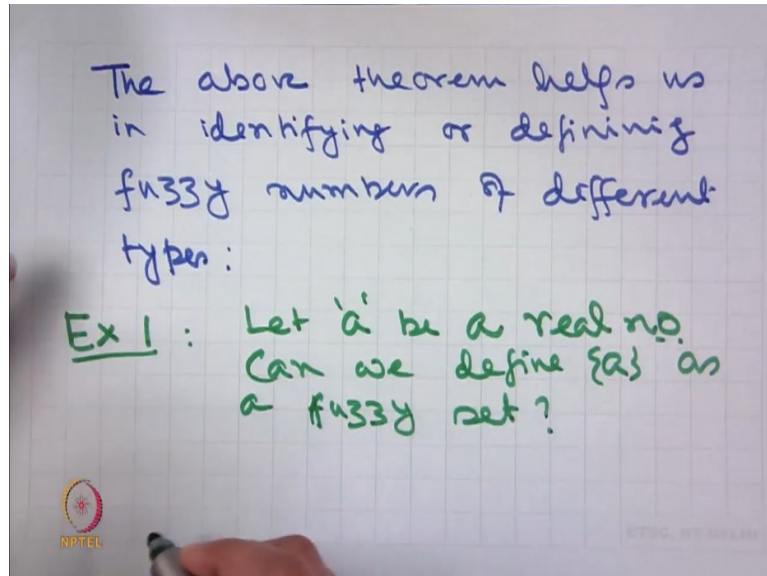 The above theorem helps us
in identifying or defining
fuzzy numbers of different
types:
Ex 1 : Let 'a' be a real no.
Can we define {a} as
a fuzzy set?
NPTEL
ETSC, IIT DELHI